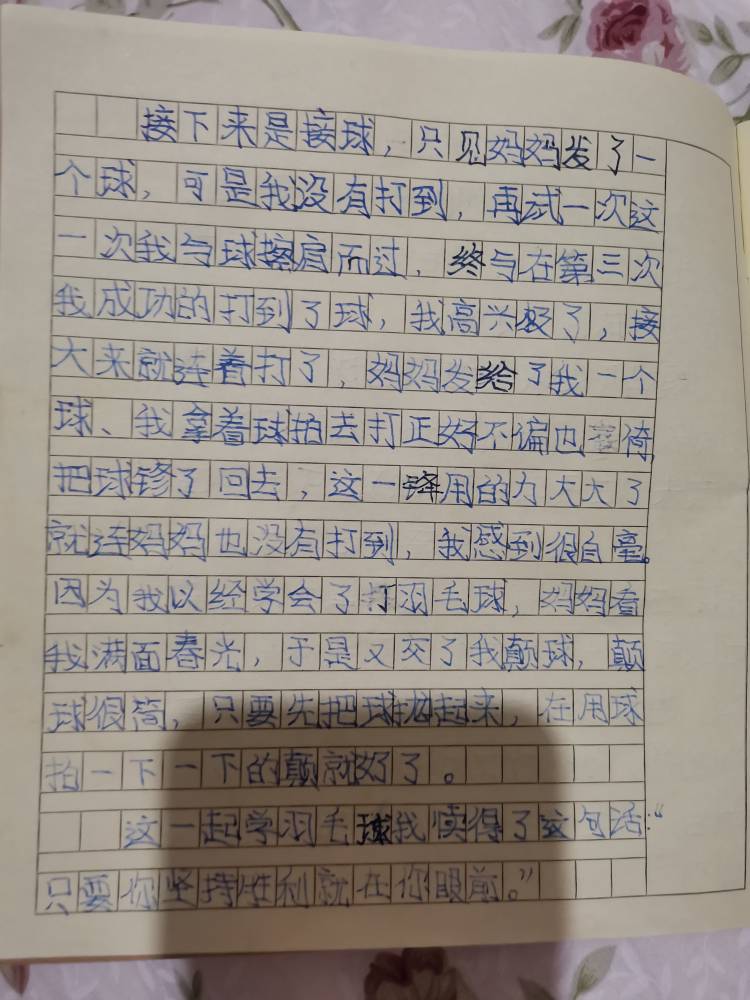 接下来是接球，只见妈妈发了一
个球，可是我没有打到，再试一次这
一次我与球擦肩而过，终与在第三次
我成功的打到了球，我高兴极了，接
大来就连着打了，妈妈发给了我一个
球、我拿着球拍去打正好不偏也倚
把球修了回去，这一用的力大大了
就连妈妈也没有打到，我感到很自毫。
因为我以经学会了打羽毛球，妈妈看
我满面春光，于是又交了我颠球，颠
球很简，只要先把球起来，在用球
拍一下一下的颠就好了。
这一起学羽毛球我懂得了这句话：“
只要你坚持胜利就在你眼前。”